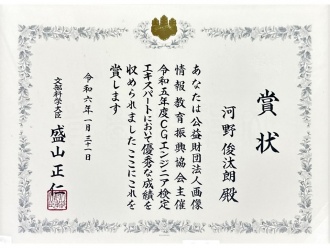 賞状
河野俊汰朗殿
あなたは公益財団法人画像
情報教育振興協会主催
令和五年度CGエンジニア検定
エキスパートにおいて優秀な成績を
収められましたここにこれを
賞します
令和六年一月三十一日
文部科学大臣 盛山正仁